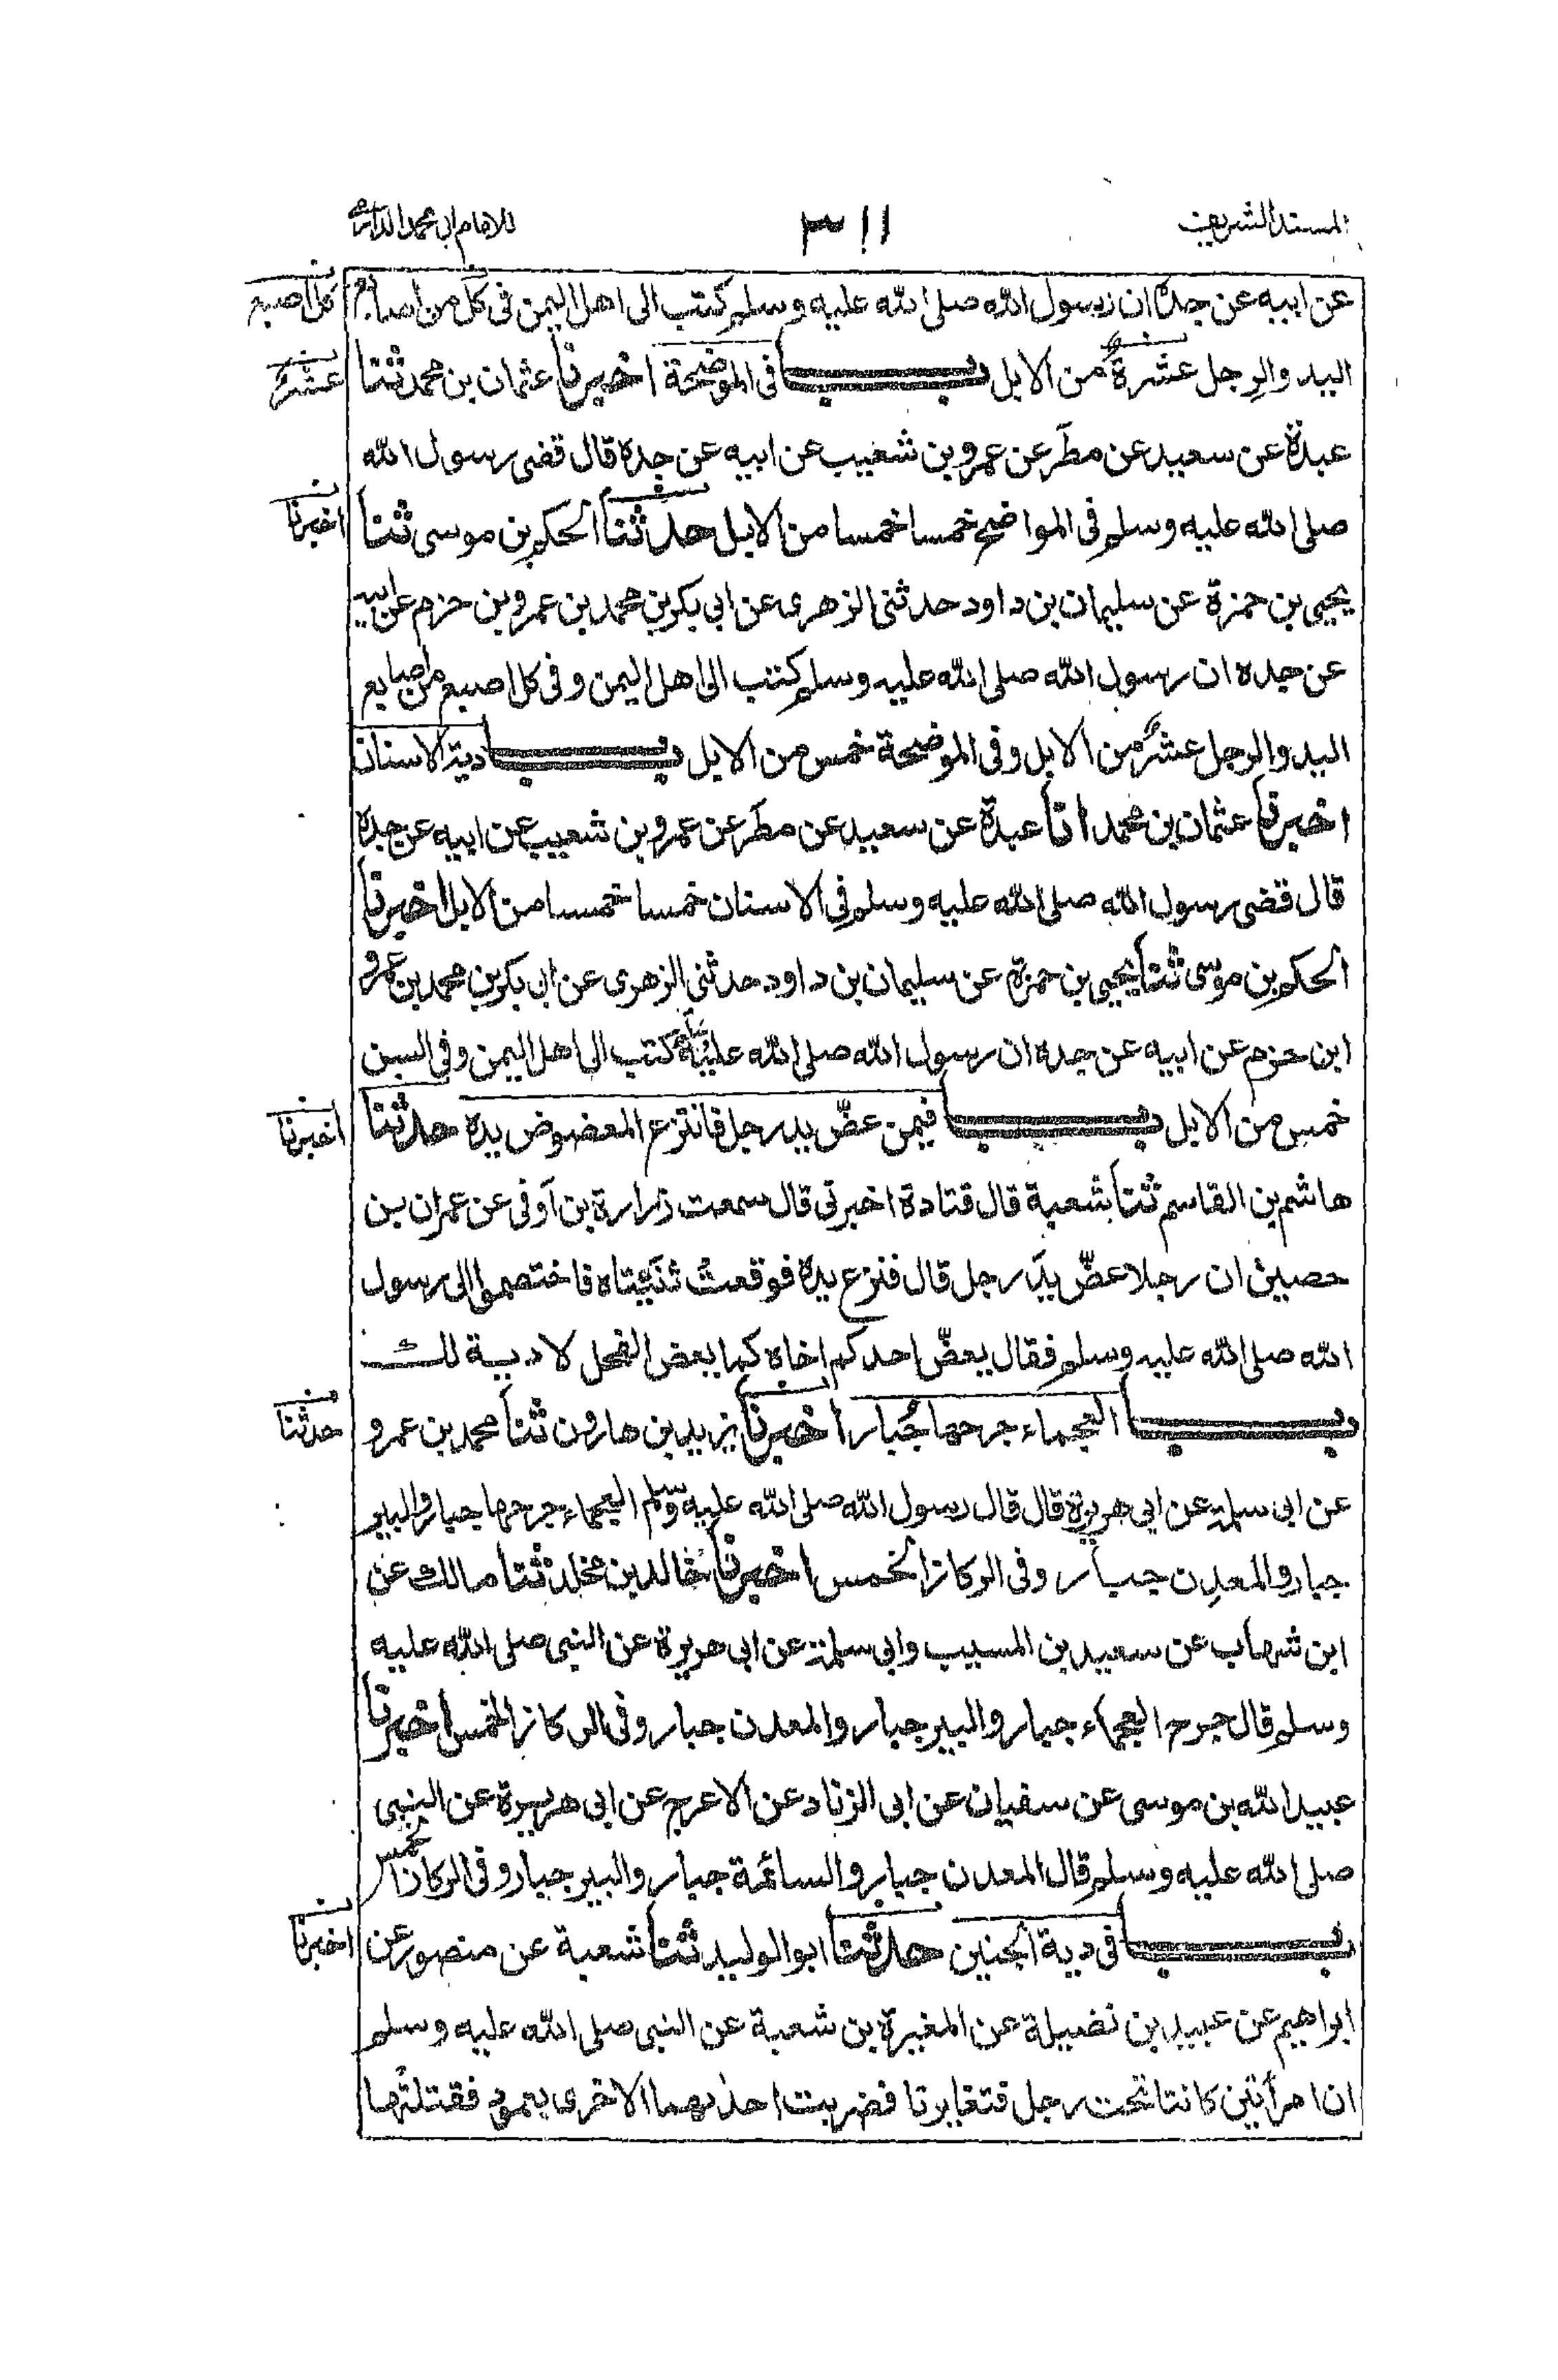 المسند الشريف
٣١١
للامام ابي محمد الدارمي
عن ابيه عن جده ان رسول الله صلى الله عليه وسلم كتب الى اهل اليمن في كل من اصابع
كل اصبع
اليد والرجل عشرة من الابل باب في الموضحة اخبرنا عثمان بن محمد ثنا
عشر
عبدة عن سعيد عن مطر عن عمرو بن شعيب عن ابيه عن جده قال قضى رسول الله
صلى الله عليه وسلم في المواضح خمسا خمسا من الابل حدثنا الحكم بن موسى ثنا
اخبرنا
يحيى بن حمزة عن سليمان بن داود حدثني الزهري عن ابي بكر بن محمد بن عمرو بن حزم عن ابيه
عن جده ان رسول الله صلى الله عليه وسلم كتب الى اهل اليمن وفي كل اصبع من اصابع
اليد والرجل عشر من الابل وفي الموضحة خمس من الابل باب دية الاسنان
اخبرنا عثمان بن محمد انا عبدة عن سعيد عن مطر عن عمرو بن شعيب عن ابيه عن جده
قال قضى رسول الله صلى الله عليه وسلم في الاسنان خمسا خمسا من الابل اخبرنا
الحكم بن موسى ثنا يحيى بن حمزة عن سليمان بن داود حدثني الزهري عن ابي بكر بن محمد بن عمرو
ابن حزم عن ابيه عن جده ان رسول الله صلى الله عليه كتب الى اهل اليمن وفي السن
خمس من الابل باب فيمن عضّ يد رجل فانتزع المعضوض يده حدثنا
اخبرنا
هاشم بن القاسم ثنا شعبة قال قتادة اخبرني قال سمعت زرارة بن أوفى عن عمران بن
حصين ان رجلا عضّ يدَ رجل قال فنزع يده فوقعتْ ثنيّتاه فاختصموا الى رسول
الله صلى الله عليه وسلم فقال يعضّ احدكم اخاه كما يعض الفحل لا دية لك
باب العجماء جرحها جُبار اخبرنا يزيد بن هارون ثنا محمد بن عمرو
حدثنا
عن ابي سلمة عن ابي هريرة قال قال رسول الله صلى الله عليه وسلم العجماء جرحها جبار والبير
جبار والمعدِن جبار وفي الركاز الخمس اخبرنا خالد بن مخلد ثنا مالك عن
ابن شهاب عن سعيد بن المسيب وابي سلمة عن ابي هريرة عن النبي صلى الله عليه
وسلم قال جرح العجماء جبار والبير جبار والمعدن جبار وفي الركاز الخمس اخبرنا
عبيد الله بن موسى عن سفيان عن ابي الزناد عن الاعرج عن ابي هريرة عن النبي
صلى الله عليه وسلم قال المعدن جبار والسائمة جبار والبير جبار وفي الركاز الخمس
باب في دية الجنين حدثنا ابو الوليد ثنا شعبة عن منصور عن
اخبرنا
ابراهيم عن عبيد بن نضيلة عن المغيرة بن شعبة عن النبي صلى الله عليه وسلم
ان امرأتين كانتا تحت رجل فتغايرتا فضربت احداهما الاخرى بعمود فقتلتْها